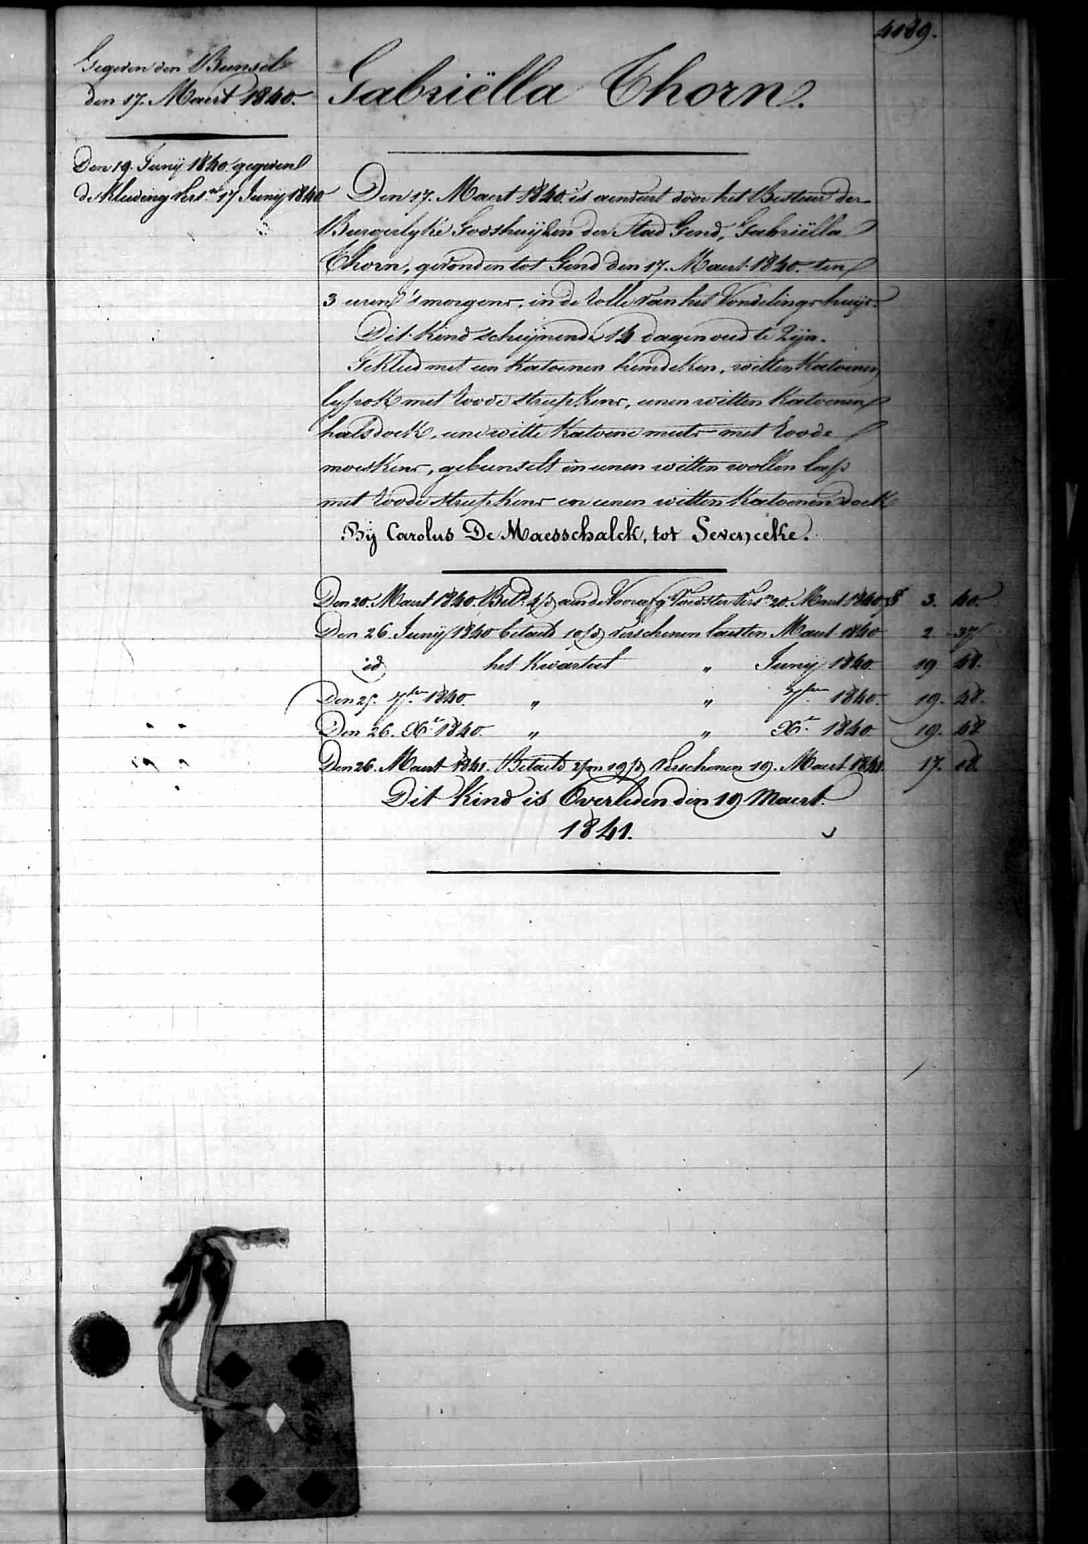 4189.
Gegeven den Bunsel
den 17. Maert 1840.
Gabriëlla Thorn.
Den 19. Junij 1840. gegeven
de Kleeding Vers. 17 Junij 1840
Den 17. Maert 1840. is aenveert door het Bestuer der
Burgerlyke Godshuijzen der Stad Gend, Gabriëlla
Thorn, gevonden tot Gend den 17. Maert 1840. ten
3 uren 's morgens, in de rolle van het Vondelings huijs.
Dit Kind schijnende 14 dagen oud te Zijn.
Gekleed met een Katoenen hemdeken, witten Katoenen
lyfrok met roode streepkens, eenen witten Katoenen
halsdoek, eene witte Katoene muts met roode
moeskens, gebunselt in eenen witten wollen lap
met roode streepkens en eenen witten Katoenen doek
Bij Carolus De Maesschalck, tot Severneeke.
Den 20. Maert 1840. Bet. aen de Voedster Vers. 20. Maert 1840 3. 40.
Den 26 Junij 1840 betaeld 10/d verschenen laesten Maert 1840 2. 37
id het Kwartael „ Junij 1840. 19 48.
Den 25. 7ber 1840. „ „ 7ber 1840. 19. 48.
Den 26. Xr 1840. „ „ Xr 1840. 19. 48
Den 26. Maert 1841. Betaeld 2/m 19/d Verschenen 19. Maert 1841. 17. 18.
Dit Kind is Overleden den 19 Maert.
1841.